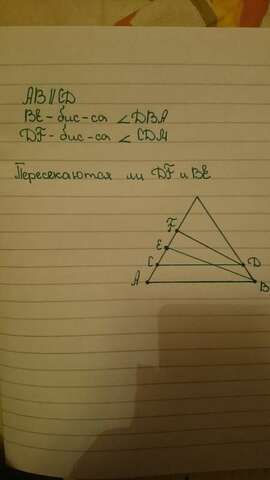 AB || CD
BE - бис-са ∠DBA
DF - бис-са ∠CDM
Пересекаются ли DF и BE
F
E
C
D
A
B